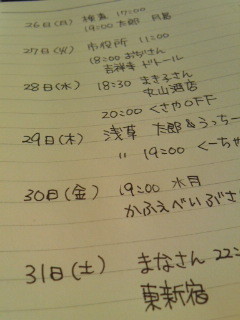 26日(日) 17:00
19:00 太郎
27日(火) 市役所 11:00
18:00 おなさん
吉祥寺 ドトール
28日(水) 18:30 まき子さん
丸山酒店
20:00 くさやOFF
29日(木) 浅草 太郎&うっちー
〃 19:00 くーちゃ
30日(金) 19:00 水月
かふぇべいぶさ
31日(土) まなさん 22:
東新宿